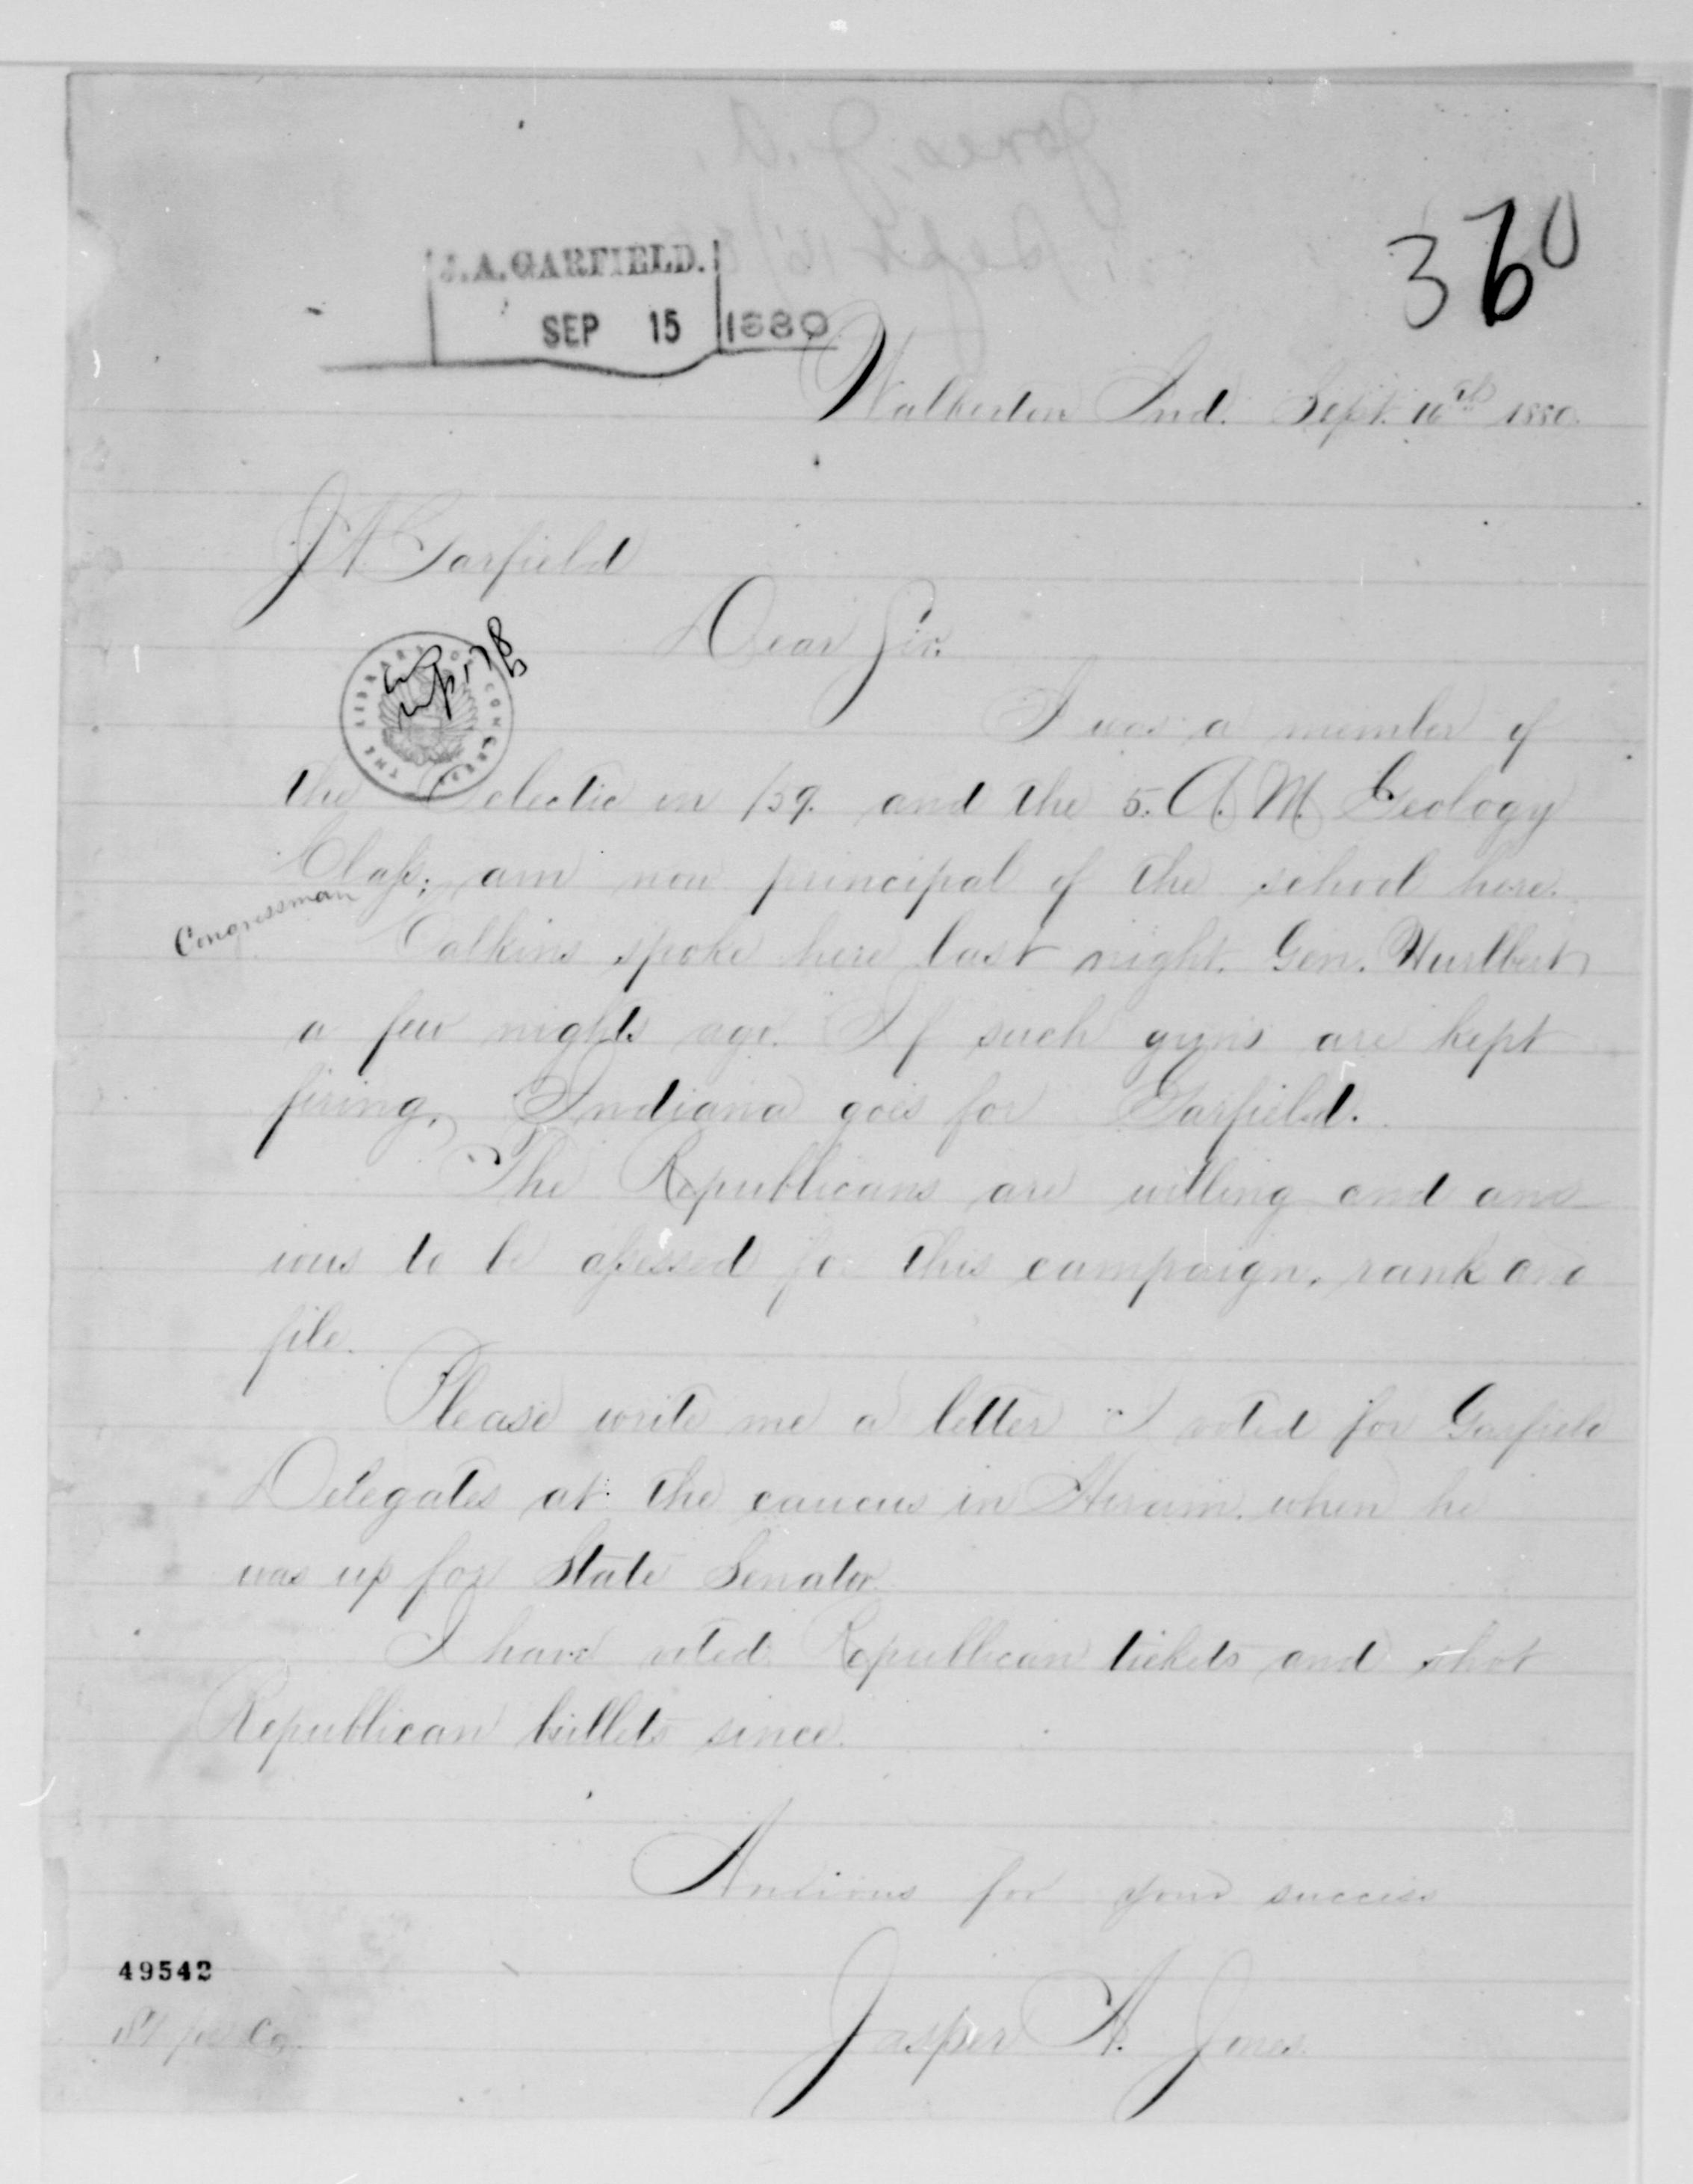 360
J.A. GARFIELD.
SEP 15 1880
Walkerton Ind. Sept. 16th 1880.
J A Garfield
Dear Sir.
THE LIBRARY OF CONGRESS
I was a member of
the Eclectic in /59. and the 5. A. M. Geology
Class; am now principal of the school here.
Congressman
Calkins spoke here last night. Gen. Hurlbert
a few nights ago. If such guns are kept
firing, Indiana goes for Garfield.
The Republicans are willing and anx
ious to be assessed for this campaign, rank and
file.
Please write me a letter. I voted for Garfield
Delegates at the caucus in Hiram, when he
was up for State Senator.
I have voted Republican tickets and shot
Republican bullets since.
Anxious for your success
Jasper A. Jones.
49542
St Jos Co.